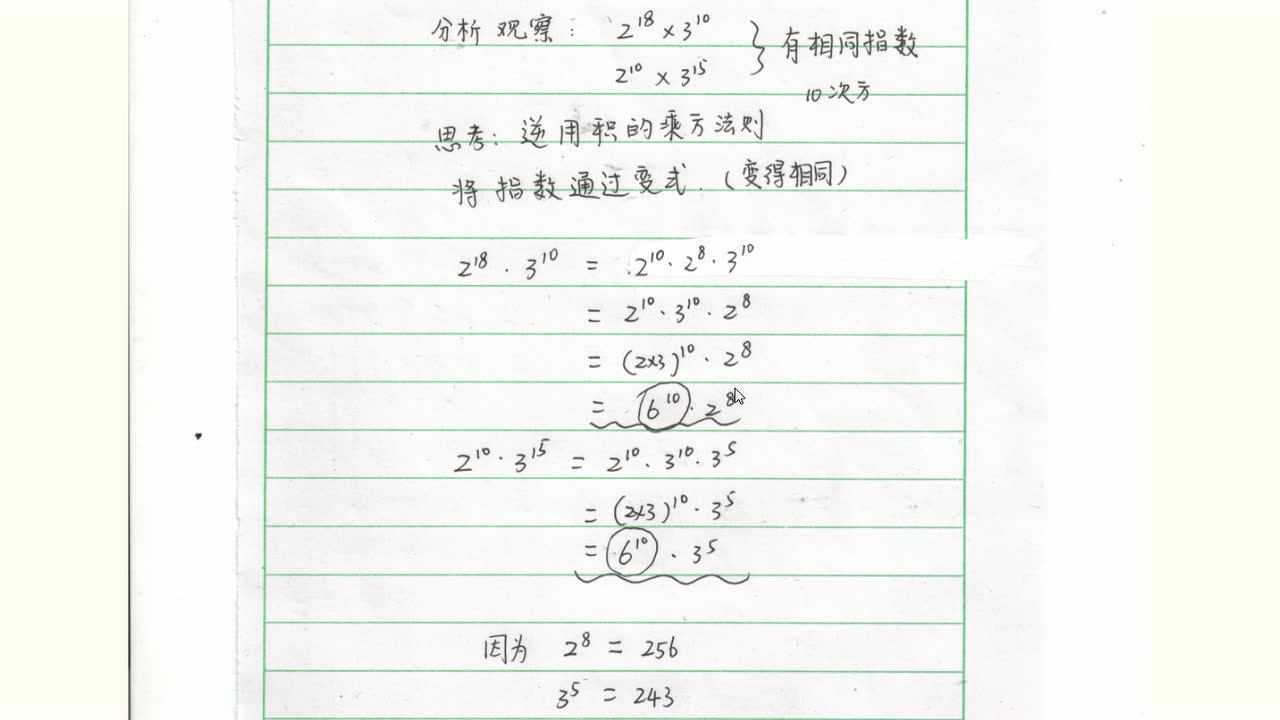 分析 观察： 2¹⁸ × 3¹⁰
2¹⁰ × 3¹⁵ } 有相同指数
10次方
思考： 逆用积的乘方法则
将指数通过变式．（变得相同）
2¹⁸ · 3¹⁰ = 2¹⁰ · 2⁸ · 3¹⁰
= 2¹⁰ · 3¹⁰ · 2⁸
= (2×3)¹⁰ · 2⁸
= 6¹⁰ · 2⁸
2¹⁰ · 3¹⁵ = 2¹⁰ · 3¹⁰ · 3⁵
= (2×3)¹⁰ · 3⁵
= 6¹⁰ · 3⁵
因为 2⁸ = 256
3⁵ = 243